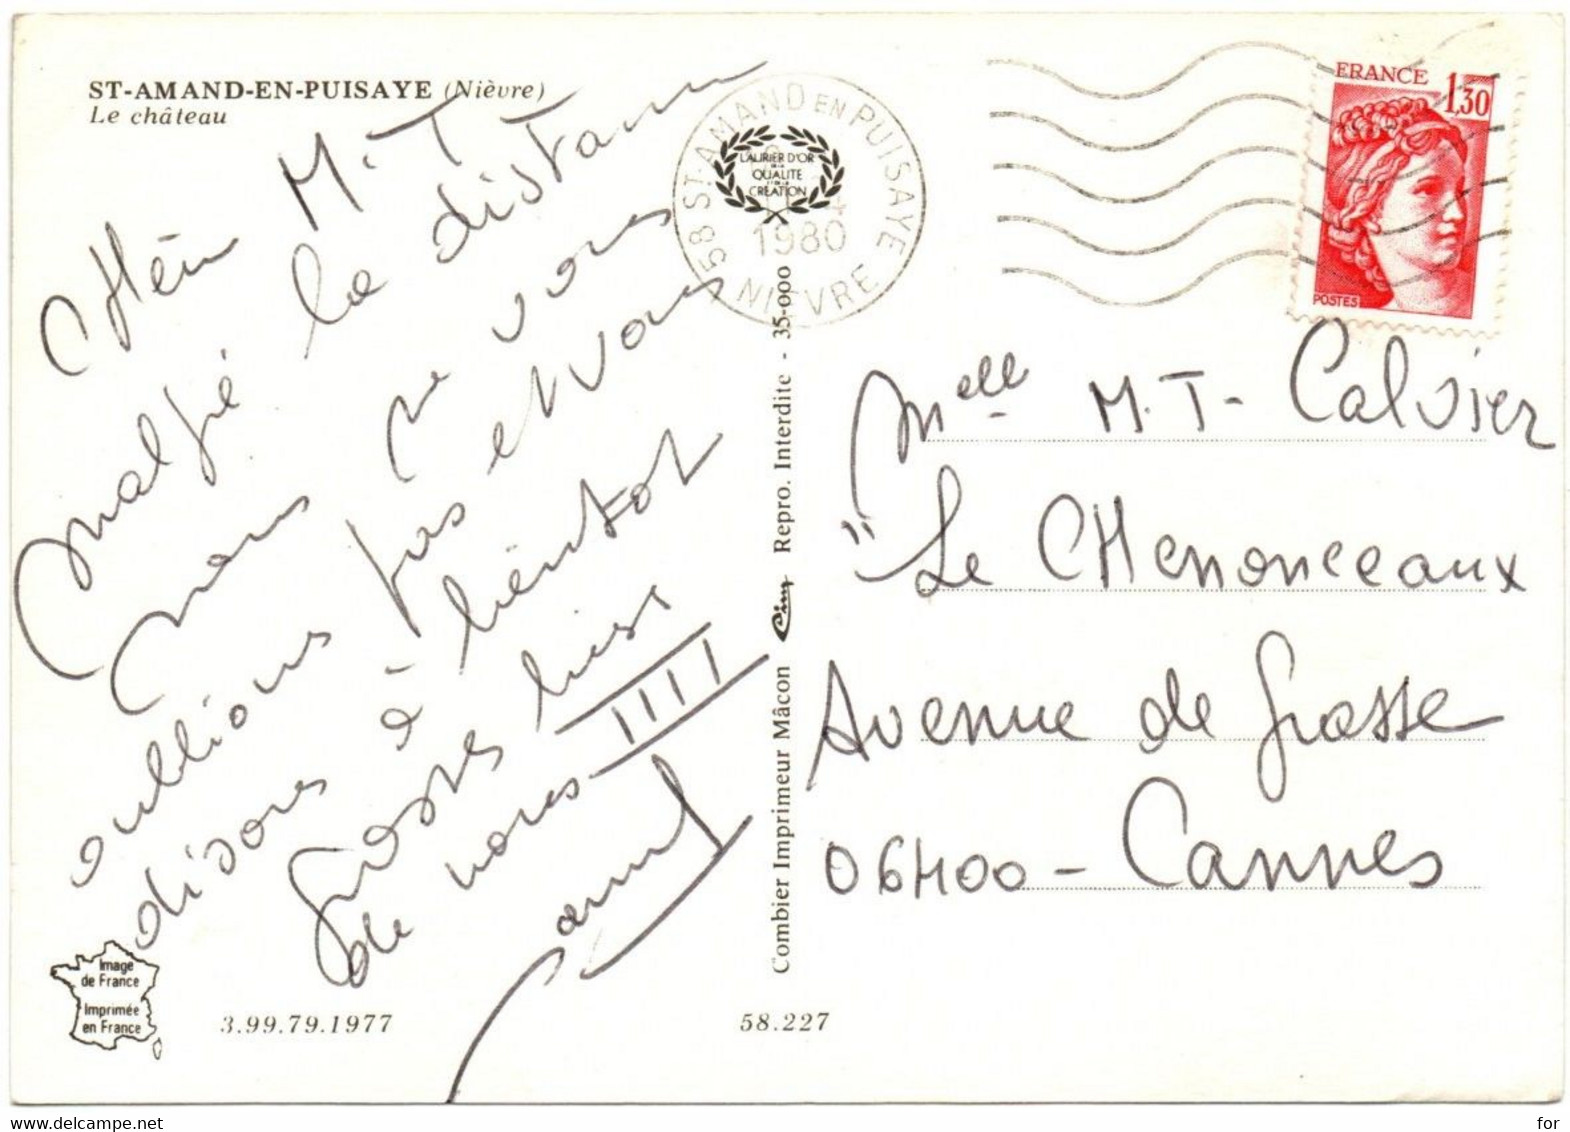 ST-AMAND-EN-PUISAYE (Nièvre)
Le château
CHéri M.T
malgré la distance
nous ne vous
oublions pas et vous
disons à bientôt
grosses bises
de nous IIII
58 ST-AMAND EN PUISAYE
LAURIER D'OR
DE LA
QUALITE
ET DE LA
CREATION
1980
NIEVRE
FRANCE
1,30
POSTES
Melle M.T- Calvier
"Le CHenonceaux
Avenue de Grasse
06400 - Cannes
Combier Imprimeur Mâcon Cim Repro. Interdite - 35-000
Image
de France
Imprimée
en France
3.99.79.1977
58.227
www.delcampe.net
for